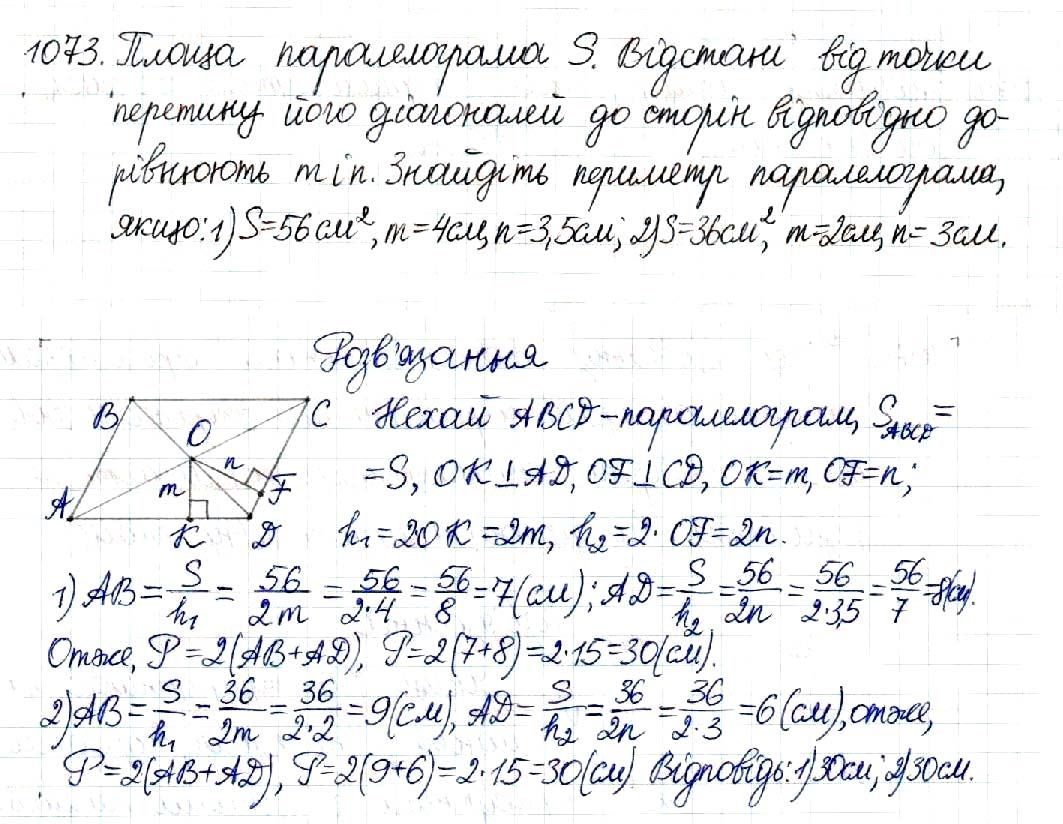 1073. Площа паралелограма S. Відстані від точки
перетину його діагоналей до сторін відповідно до-
рівнюють m і n. Знайдіть периметр паралелограма,
якщо: 1) S=56 см², m=4см, n=3,5см; 2) S=36см², m=2см, n=3см.
Розв'язання
B C
O
n
m F
A K D
Нехай ABCD – паралелограм, S_ABCD =
=S, OK⊥AD, OF⊥CD, OK=m, OF=n;
h₁=2OK=2m, h₂=2·OF=2n.
1) AB = S/h₁ = 56/2m = 56/2·4 = 56/8 = 7(см); AD = S/h₂ = 56/2n = 56/2·3,5 = 56/7 = 8(см).
Отже, P=2(AB+AD), P=2(7+8)=2·15=30(см).
2) AB = S/h₁ = 36/2m = 36/2·2 = 9(см), AD = S/h₂ = 36/2n = 36/2·3 = 6(см), отже,
P=2(AB+AD), P=2(9+6)=2·15=30(см) Відповідь: 1) 30см; 2) 30см.